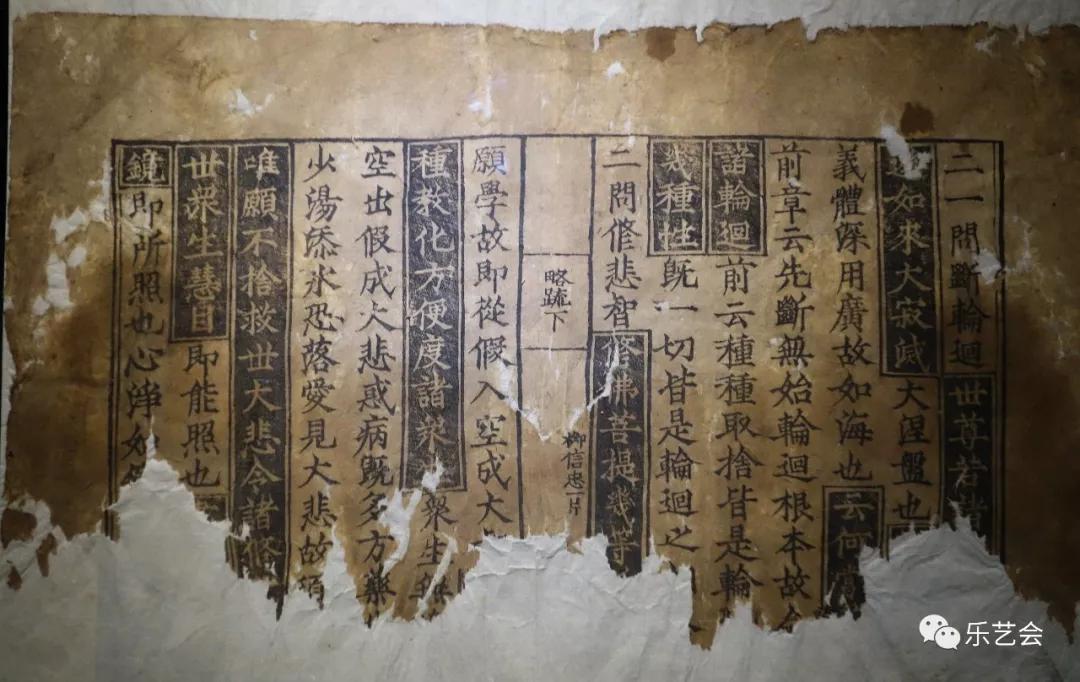 二一問斷輪迴世尊若諸
如來大寂滅大涅盤也
義體深用廣故如海也云何當
前章云先斷無始輪迴根本故今
諸輪迴前云種種取捨皆是輪
幾種性既一切皆是輪迴之
二問修悲智修佛菩提幾等
略疏下
柳信忠一片
願學故即從假入空成大
種教化方便度諸衆衆生無
空出假成火悲惑病既多方藥
少湯添氷恐落愛見大悲故須
唯願不捨救世大悲令諸修
世衆生慧目即能照也
鏡即所照也心淨如
乐艺会